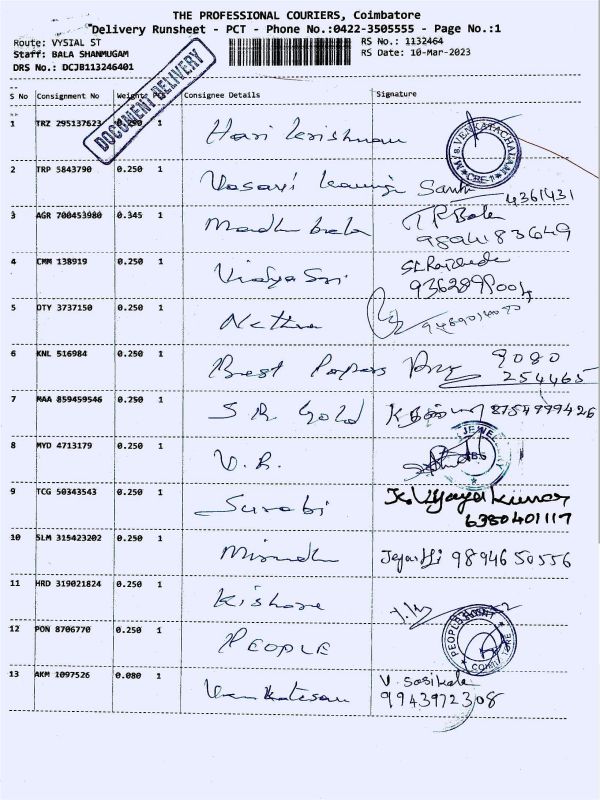 THE PROFESSIONAL COURIERS, Coimbatore
Delivery Runsheet - PCT - Phone No.:0422-3505555 - Page No.:1
Route: VYSIAL ST
RS No.: 1132464
Staff: BALA SHANMUGAM
RS Date: 10-Mar-2023
DRS No.: DCJB113246401
DOCUMENT DELIVERY
S No Consignment No Weight Consignee Details Signature
1 TRZ 295137623 0.250 1 Hari Krishnan
B. VENKATACHALAM CBE-1
2 TRP 5843790 0.250 1 4361431
3 AGR 700453980 0.345 1 Madhu bala T R Bala
9894183649
4 CMM 138919 0.250 1 Vidya Sri
9362899004
5 DTY 3737150 0.250 1 Nethra
6 KNL 516984 0.250 1 Best Papers 9080
254465
7 MAA 859459546 0.250 1 S R Gold 8754999426
8 MYD 4713179 0.250 1 V. R.
JEWEL
9 TCG 50343543 0.250 1 Surabi K. Vijayakumar
6380401117
10 SLM 315423202 0.250 1 9894650556
11 HRD 319021824 0.250 1 Kishore
12 PON 8706770 0.250 1 PEOPLE
PEOPLE
13 AKM 1097526 0.080 1 Venkatesan V. Sasikala
9943972308